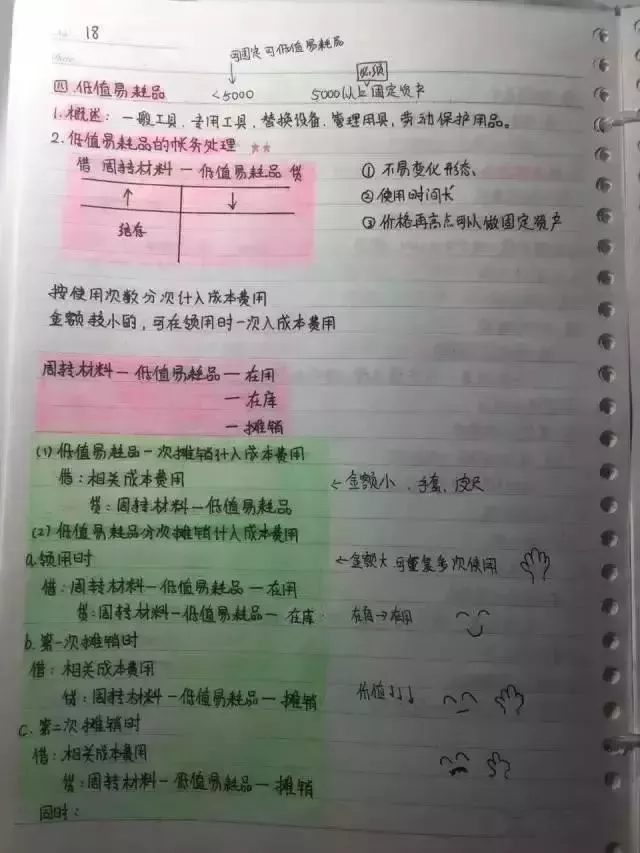 18
可固定可低值易耗品
必须
四.低值易耗品 <5000 5000以上固定资产
1.概述：一般工具、专用工具、替换设备、管理用具、劳动保护用品。
2.低值易耗品的帐务处理 ★★
借 周转材料—低值易耗品 贷
↑ ↓
结存
① 不易变化形态、
② 使用时间长
③ 价格再高点可以做固定资产
按使用次数分次计入成本费用
金额较小的，可在领用时一次入成本费用
周转材料—低值易耗品—在用
—在库
—摊销
(1)低值易耗品一次摊销计入成本费用
借：相关成本费用 ←金额小、手套、皮尺
贷：周转材料—低值易耗品
(2)低值易耗品分次摊销计入成本费用
a.领用时 ←金额大 可重复多次使用
借：周转材料—低值易耗品—在用
贷：周转材料—低值易耗品—在库 在库→在用
b.第一次摊销时
借：相关成本费用
贷：周转材料—低值易耗品—摊销 价值↓↓↓
c.第二次摊销时
借：相关成本费用
贷：周转材料—低值易耗品—摊销
同时：